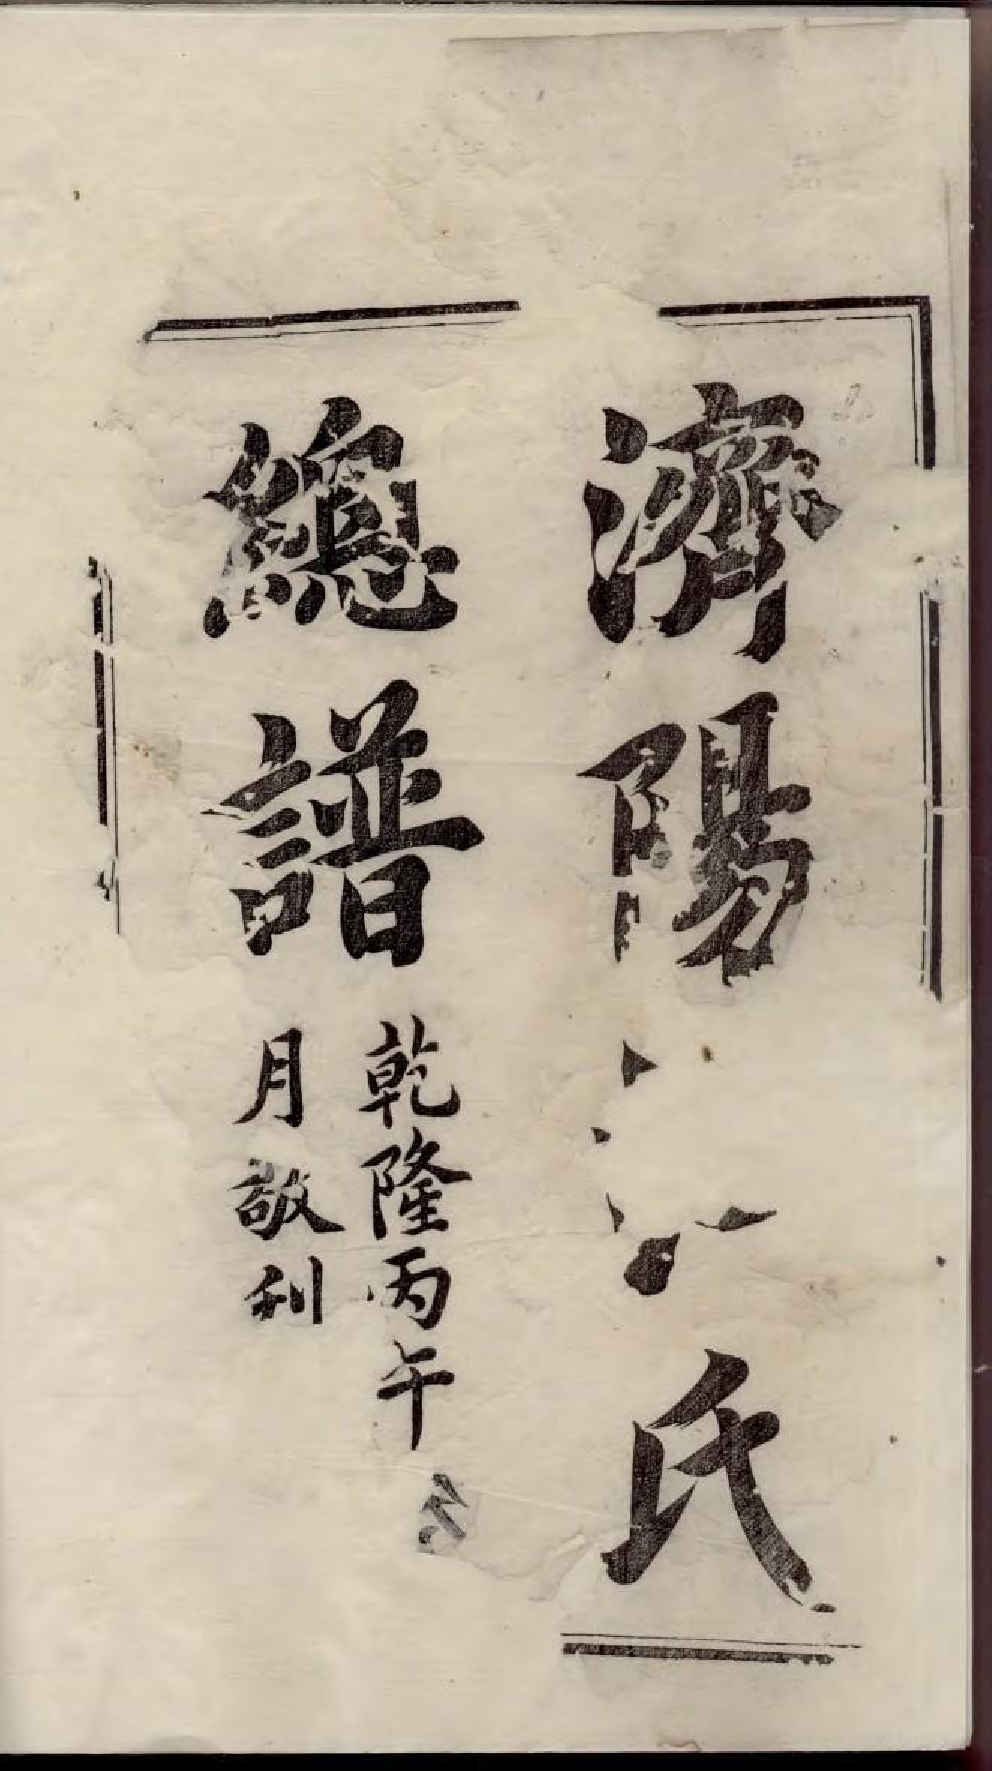 濟陽 氏
總譜
乾隆丙午
月敬刊